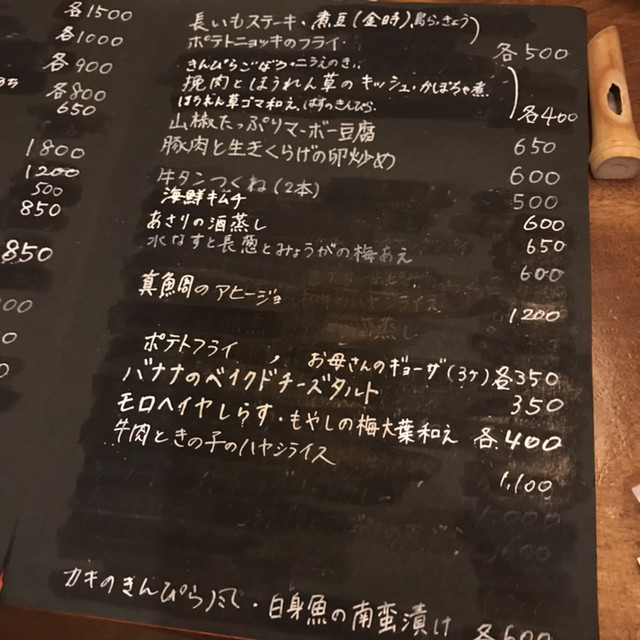 各1500
各1000
各900
各800
650
1800
1200
500
850
850
長いもステーキ・煮豆(金時)、島らっきょう
ポテトニョッキのフライ・
各500
きんぴらごぼう・ニラえのき・
挽肉とほうれん草のキッシュ・かぼちゃ煮
ほうれん草ゴマ和え、はすのきんぴら
各400
山椒たっぷりマーボー豆腐 650
豚肉と生きくらげの卵炒め 600
牛タンつくね(2本) 500
海鮮キムチ 600
あさりの酒蒸し 650
水なすと長葱とみょうがの梅あえ 600
真鯛のアヒージョ 1200
ポテトフライ お母さんのギョーザ(3ケ) 各350
バナナのベイクドチーズタルト 350
モロヘイヤしらす・もやしの梅大葉和え 各400
牛肉ときの子のハヤシライス 1,100
カキのきんぴら・白身魚の南蛮漬け 各600